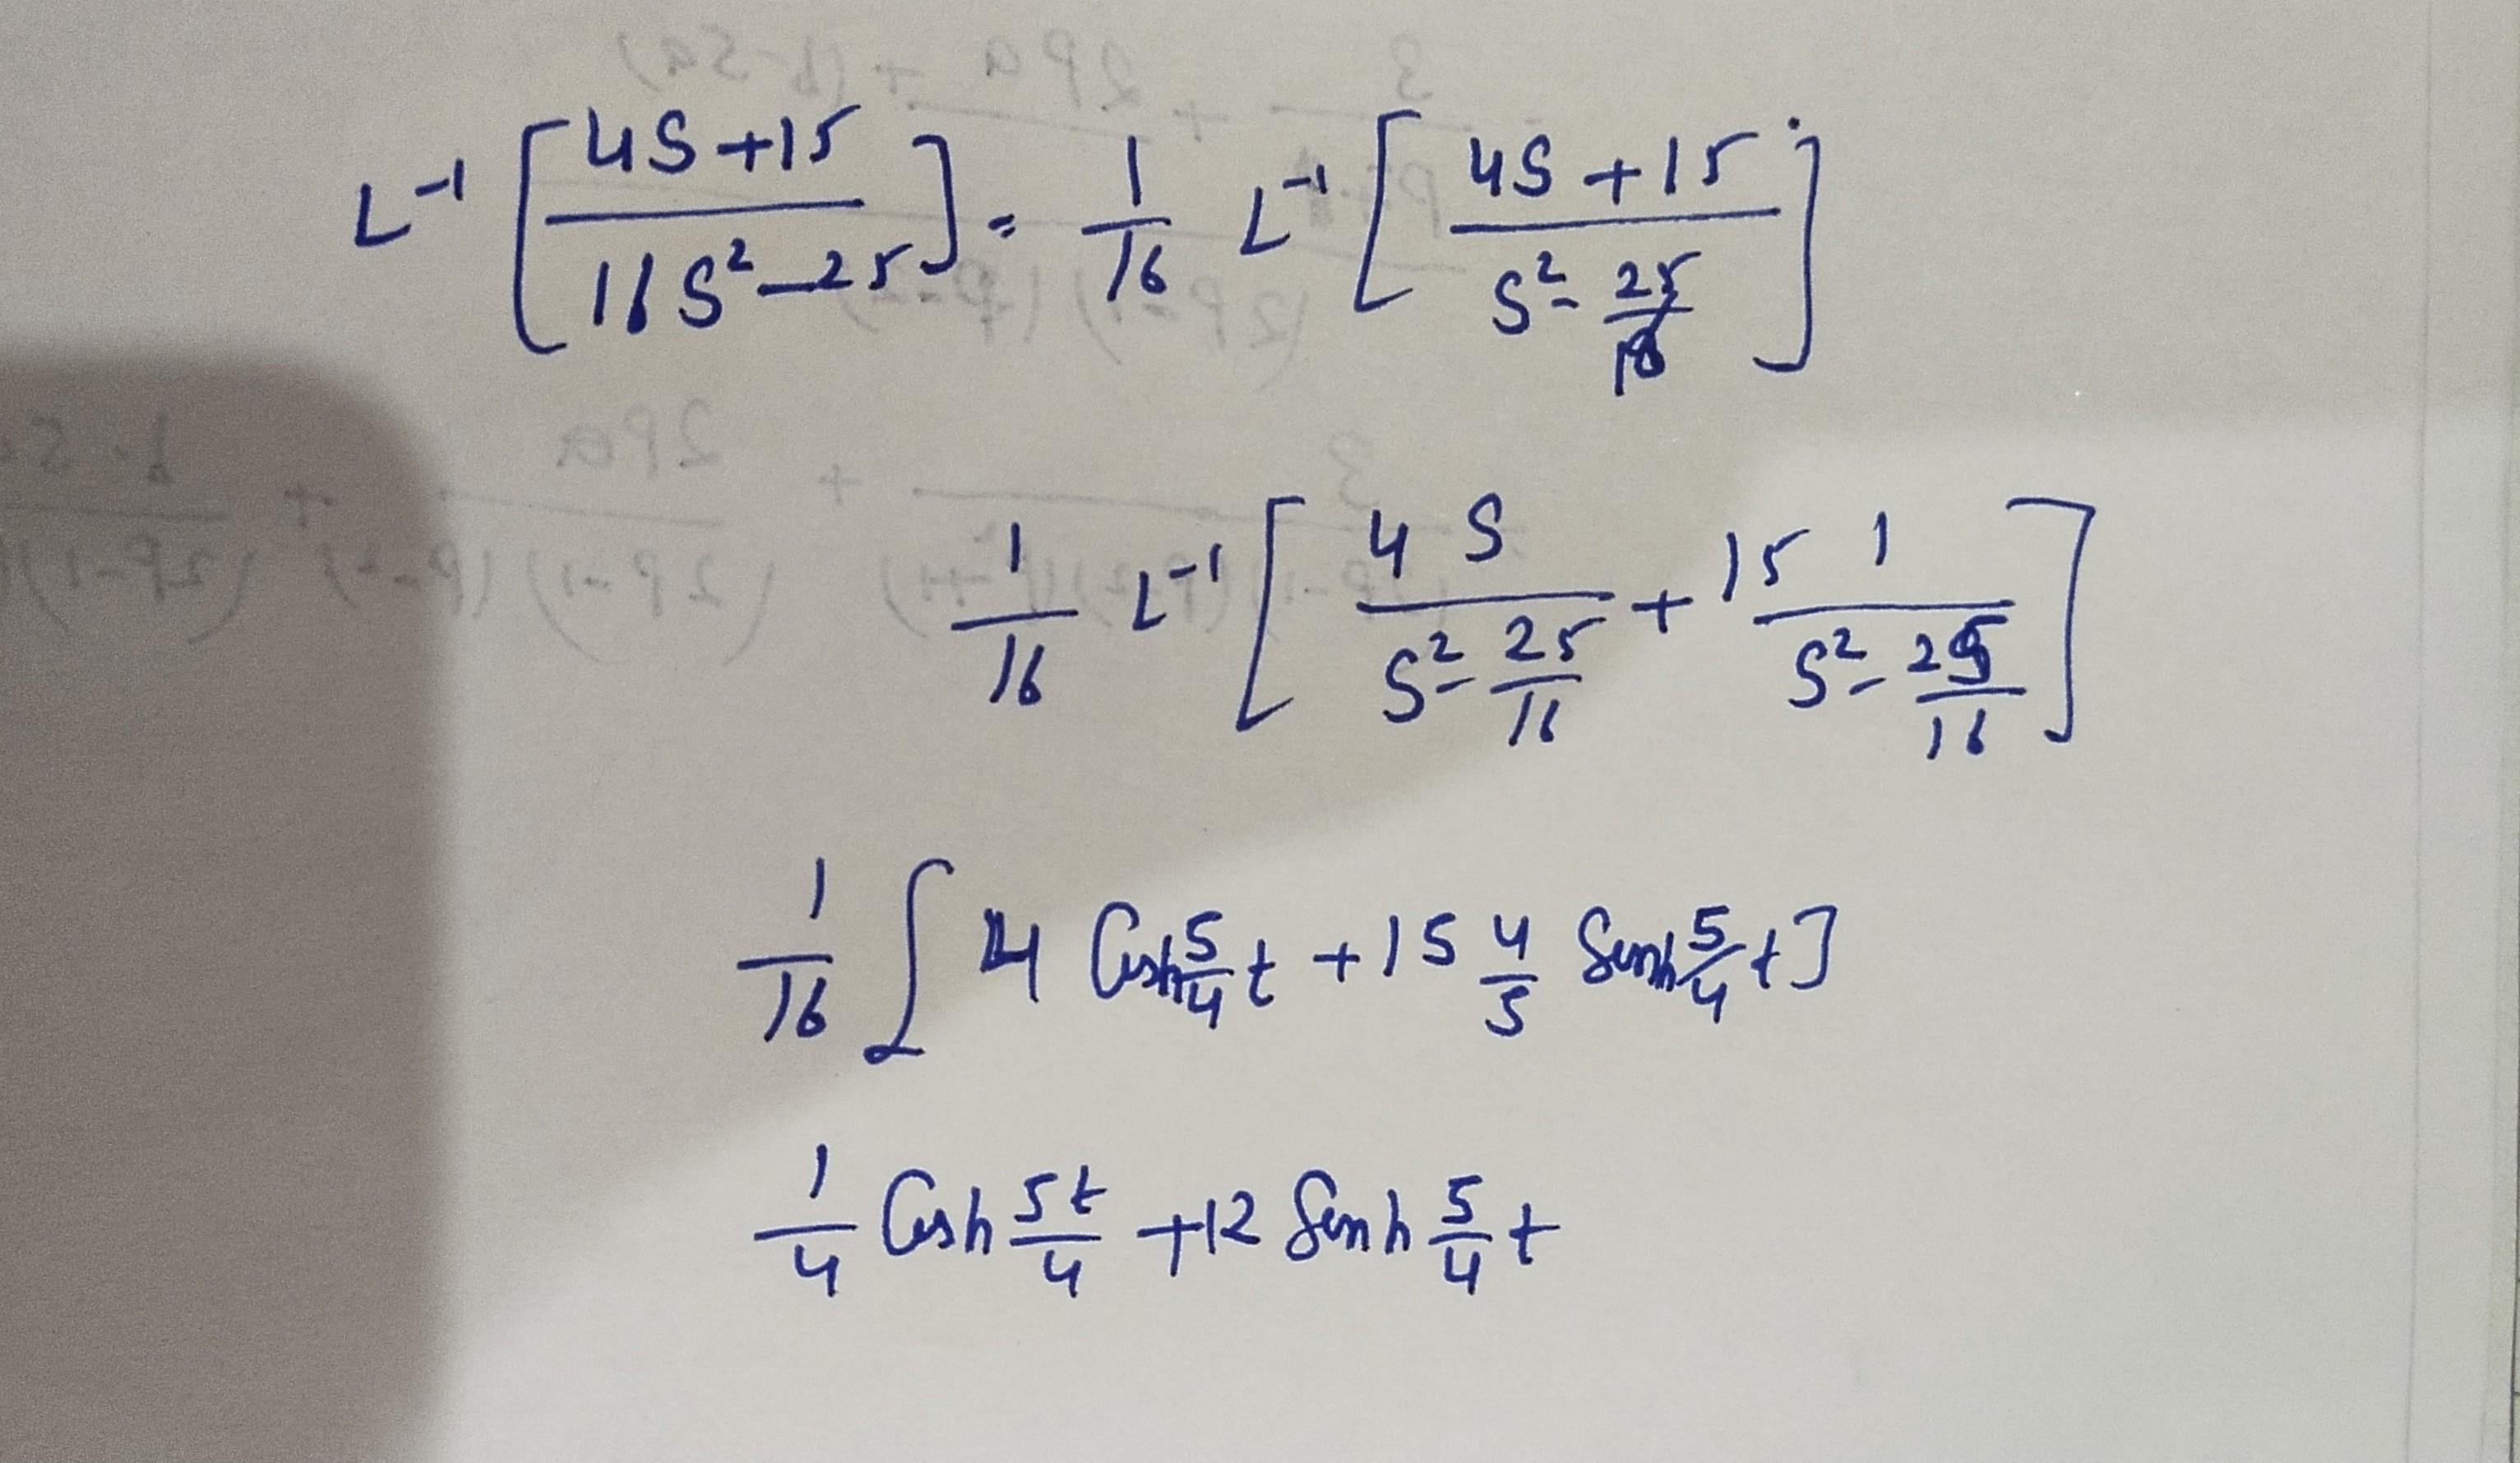 L⁻¹ [ (4S+15)/(16S²-25) ] = 1/16 L⁻¹ [ (4S+15)/(S²-25/16) ]
1/16 L⁻¹ [ 4 S/(S²-25/16) + 15 1/(S²-25/16) ]
1/16 [ 4 Cosh 5/4 t + 15 4/5 Sinh 5/4 t ]
1/4 Cosh 5t/4 + 12 Sinh 5/4 t